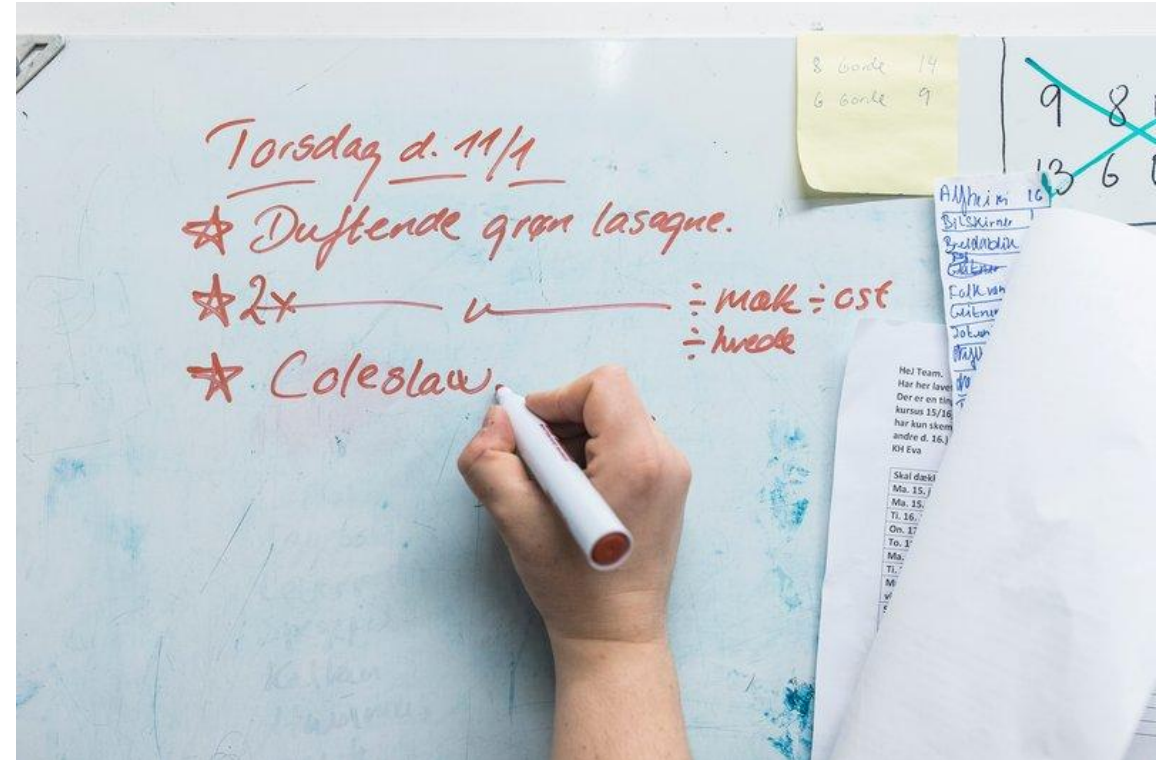 Torsdag d. 11/1
☆ Duftende grøn lasagne.
☆ 2x —— 〃 —— ÷ mælk ÷ ost
÷ hvede
☆ Coleslaw.
8 Gorde 14
6 Gorde 9
9 8
13 6
Alfheim 16
Bilskirner
Breidablik
Glitner
Hej Team.
Har her lave
Der er en tin
kursus 15/16
har kun skem
andre d. 16.j
KH Eva
Skal dækk
Ma. 15. j
Ma. 15.
Ti. 16.
On. 17
To. 1
Ma.
Ti.